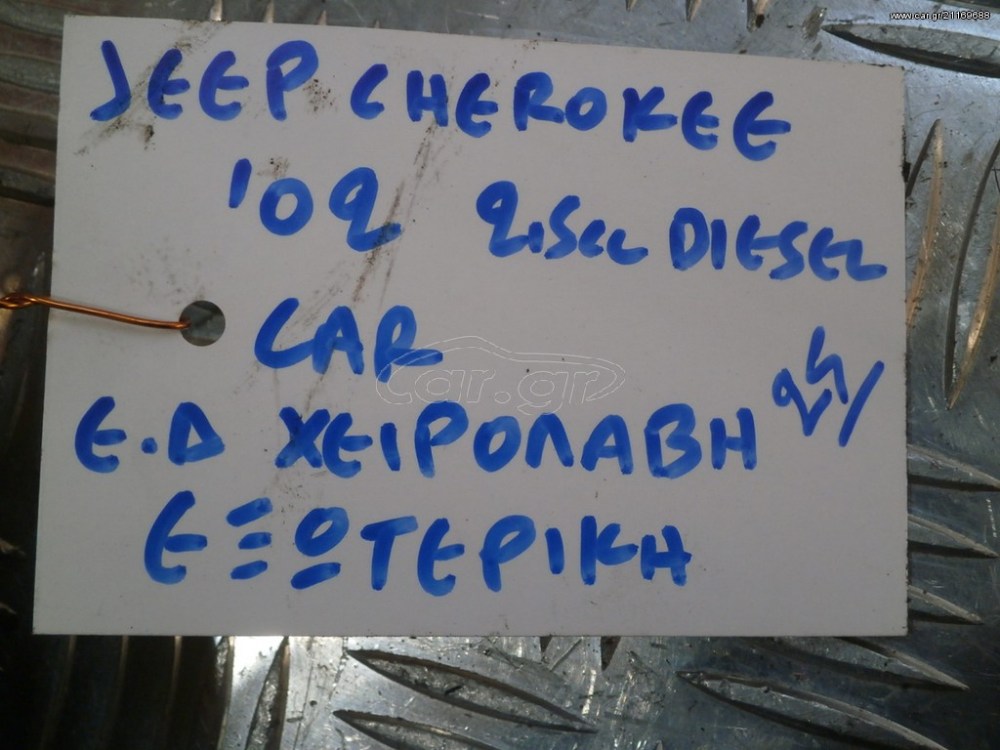 www.car.gr/21169688
JEEP CHEROKEE
'02 2,5cc DIESEL
CAR
car.gr
Ε.Δ ΧΕΙΡΟΛΑΒΗ
ΕΞΩΤΕΡΙΚΗ